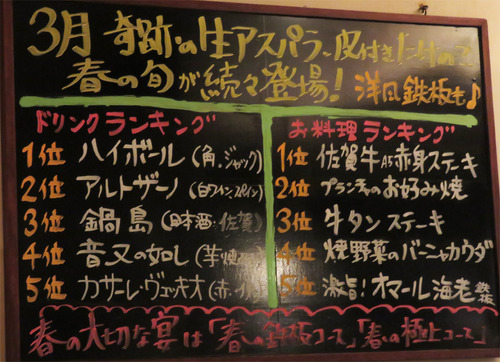 3月 奇跡の生アスパラ、皮付きたけのこ
春の旬が続々登場! 洋風鉄板も♪
ドリンクランキング
1位 ハイボール(角、ジャック)
2位 アルトザーノ(白ワイン、スペイン)
3位 鍋島(日本酒・佐賀)
4位 音又の如し(芋焼
5位 カサーレ・ヴェッキオ(赤・イ
お料理ランキング
1位 佐賀牛A5赤身ステーキ
2位 プランチャのお好み焼
3位 牛タンステーキ
4位 焼野菜のバーニャカウダ
5位 激旨!オマール海老 鉄板
春の大切な宴は「春の鉄板コース」「春の極上コース」